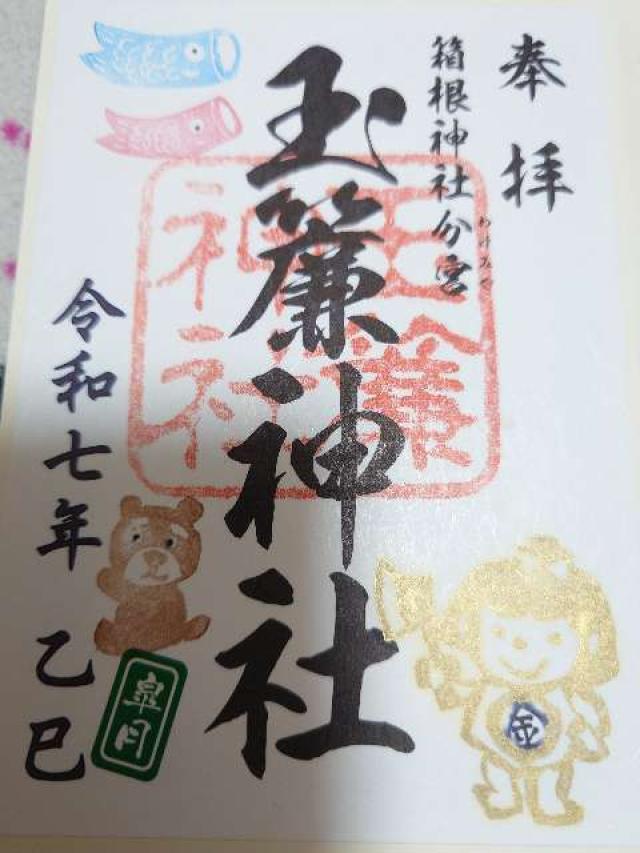 奉拝
箱根神社分宮
わけみや
玉簾神社
玉簾
神社
令和七年 乙巳
皐月
金